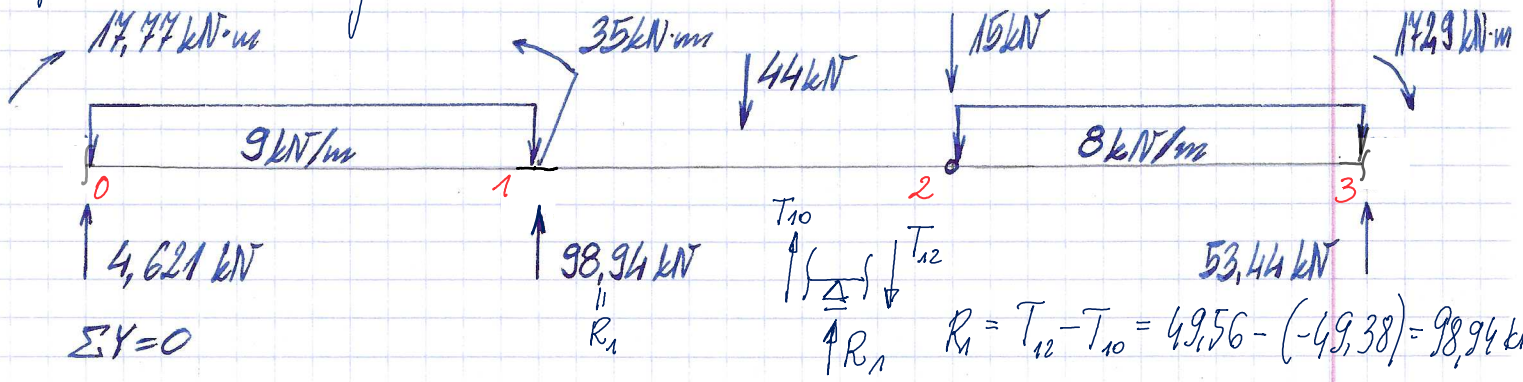 17,77 kN·m 35 kN·m 44 kN 15 kN 172,9 kN·m
9 kN/m 8 kN/m
0 1 2 3
4,621 kN 98,94 kN T10 T12 53,44 kN
ΣY=0 " R1 R1 R1 = T12 - T10 = 49,56 - (-49,38) = 98,94 k